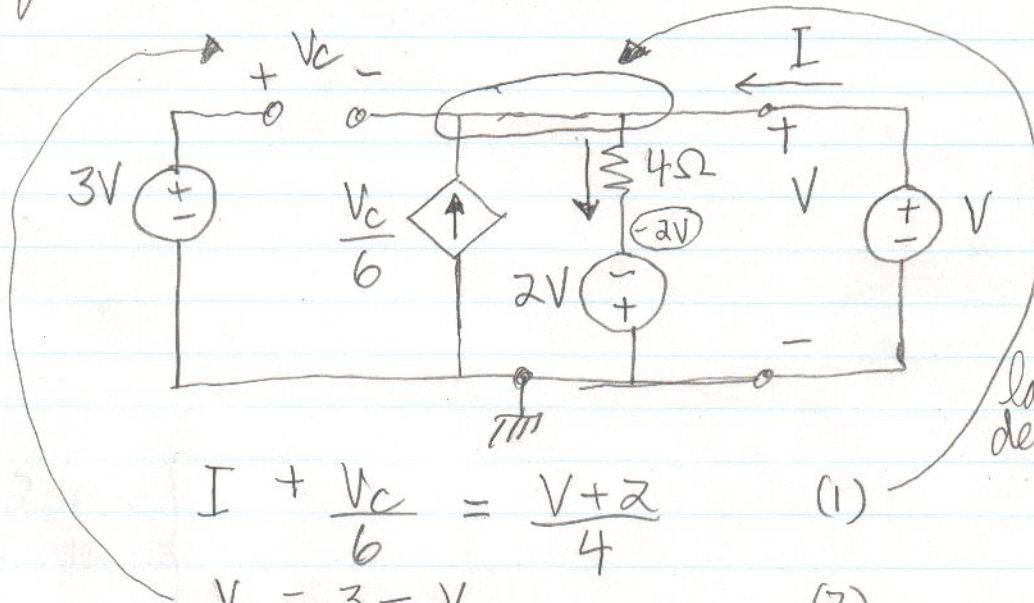 + Vc -
I
3V
+
-
Vc/6
4Ω
-2V
2V
-
+
+
V
-
+
-
V
I + Vc/6 = (V+2)/4 (1)